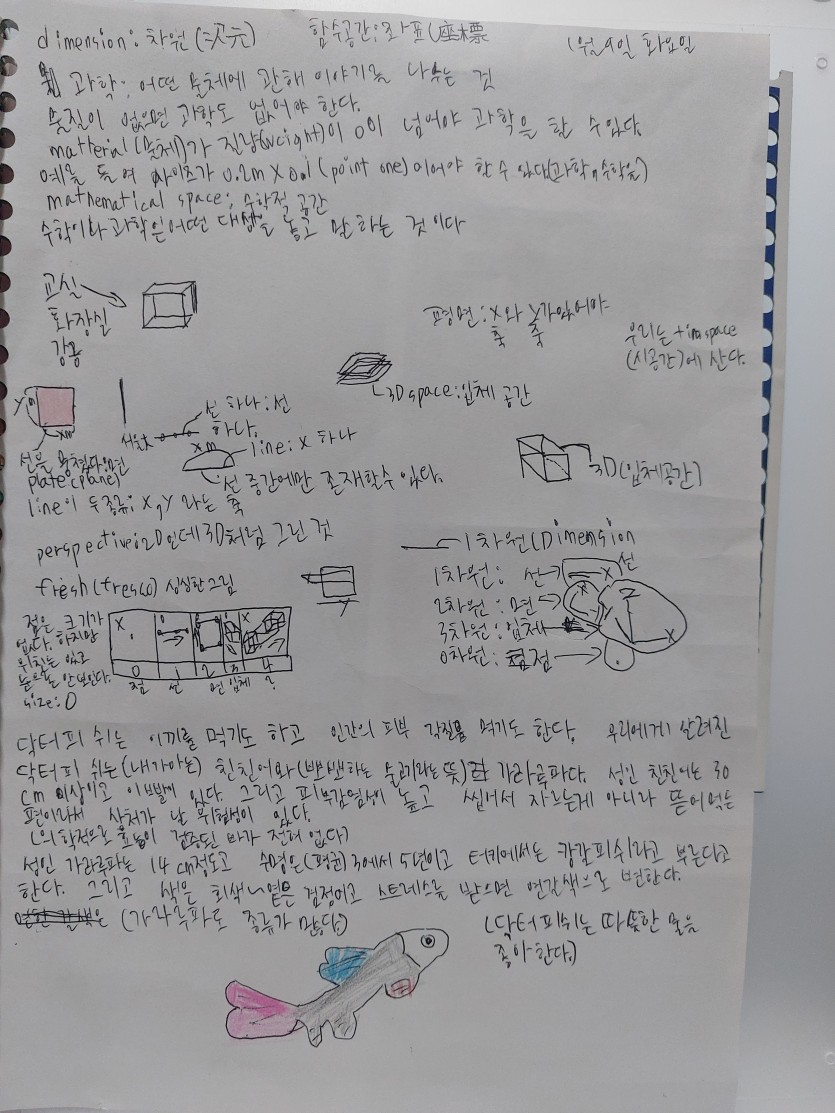 dimension: 차원 (次元) 함수공간: 좌표(座標 1월9일 화요일
과학: 어떤 물체에 관해 이야기를 나누는 것
물질이 없으면 과학도 없어야 한다.
matterial(물체)가 질량(weight)이 0이 넘어야 과학을 할 수있다.
예를 들어 사이즈가 0.2m X 0.1 (point one) 이어야 할수 있다(과학,수학을)
mathematical space: 수학적 공간
수학이와 과학은 어떤 대상을 놓고 말하는 것 이다
교실
화장실
강롱
평면: X와 Y가있어야
축 축
우리는 time space
(시공간)에 산다.
3D space: 입체 공간
선 하나: 선
하나.
Y m
X m
서울
X m
line: X 하나
선 중간에만 존재할수 있다.
plate(plane)
line이 두종류: X, Y 라는 축
3D(입체공간)
perspective: 2D인데 3D처럼 그린 것
fresh(fresco) 싱싱한그림
Y
1차원(Dimension
1차원: 선 → X 선
2차원: 면 → X Y
3차원: 입체 Z X
0차원: 점 → .
점은 크기가
없다. 하지만
위치는 있고
눈으로는 안보인다.
size: 0
X X
0 1 2 3 4
점 선 면 입체 ?
닥터피쉬는 이끼를 먹기도 하고 인간의 피부 각질을 먹기도 한다. 우리에게 알려진
닥터피쉬는(내가아는) 친친어와(뽀뽀하는 물고기라는 뜻) 가라루파다. 성인 친친어는 30
cm 이상이고 이빨이 있다. 그리고 피부감염성이 높고 씹어서 자르는게 아니라 뜯어먹는
편이라서 상처가 날 위험성이 있다.
(의학적으로 효능이 검증된 바가 전혀 없다)
성인 가라루파는 14cm정도고 수명은(평균) 3에서 5년이고 터키에서는 캉갈피쉬라고 부른다고
한다. 그리고 색은 회색나 옅은 검정이고 스트레스를 받으면 연갈색으로 변한다.
(가라루파도 종류가 많다.)
(닥터피쉬는 따뜻한 물을
좋아한다.)